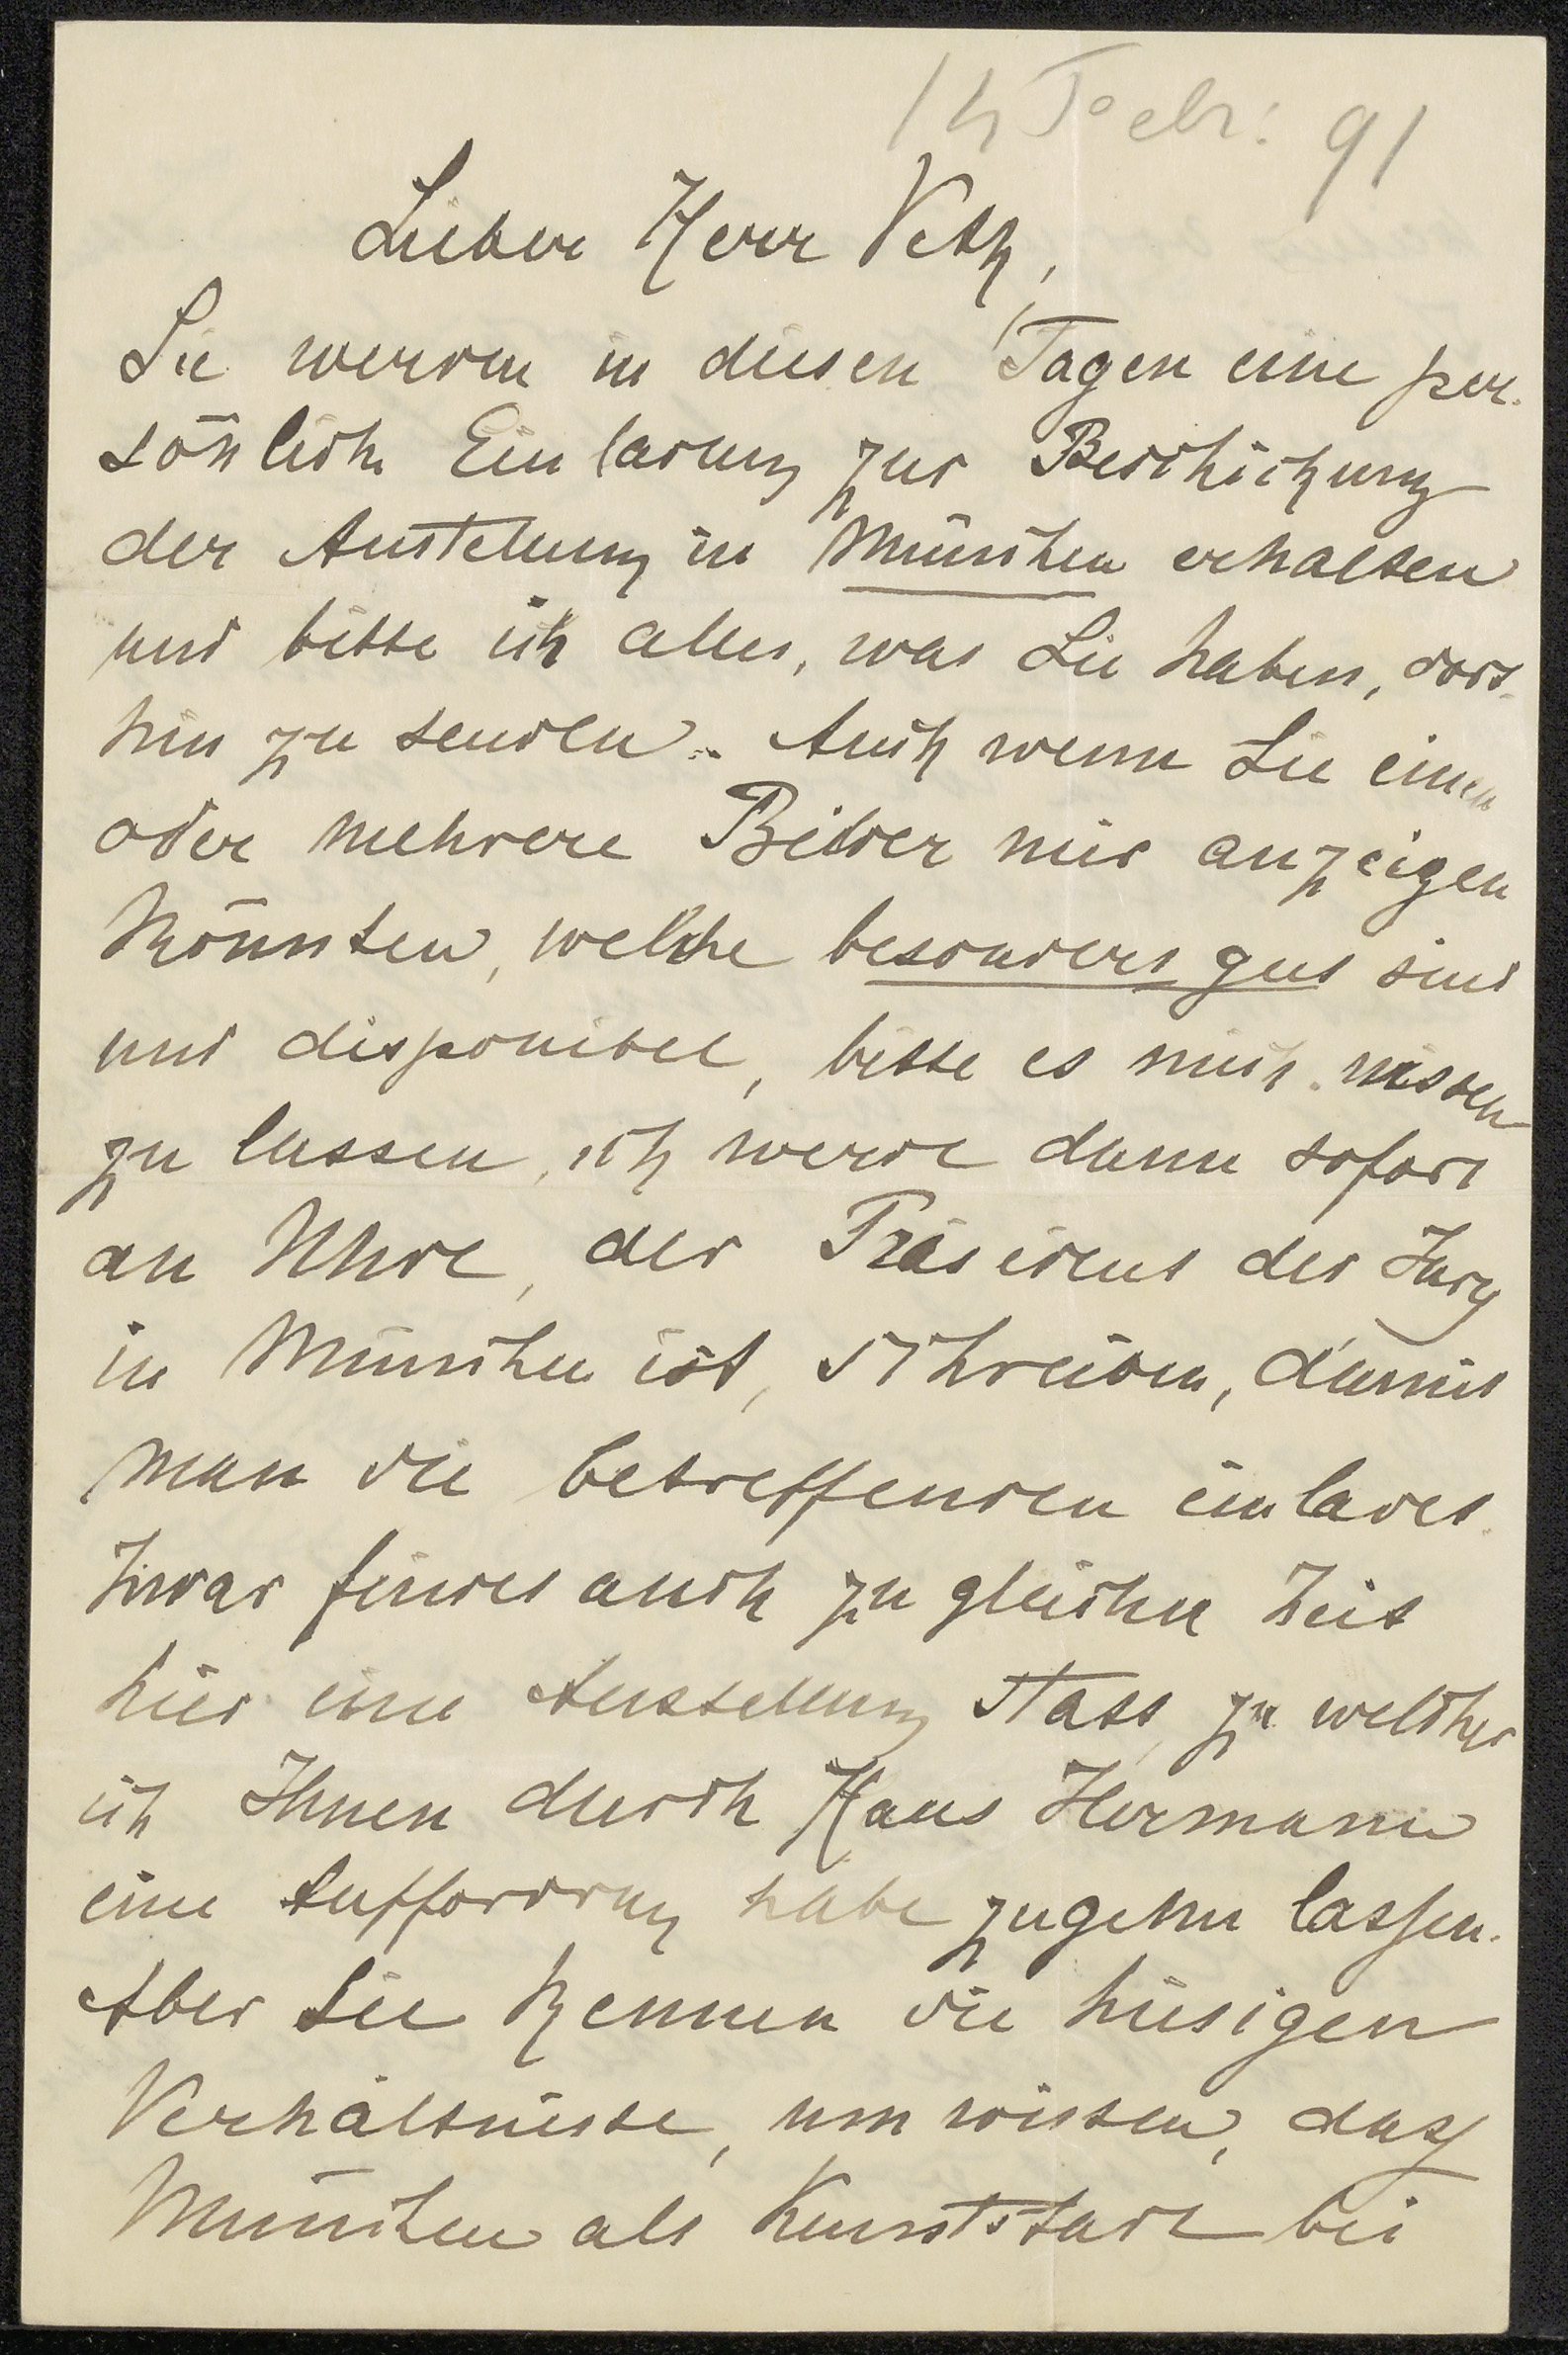 14 Febr: 91
Lieber Herr Veth,
Sie werden in diesen Tagen eine per-
sönliche Einladung zur Beschickung
der Austellung in München erhalten
und bitte ich alles, was Sie haben, dort-
hin zu senden. Auch wenn Sie einen
oder mehrere Bilder mir anzeigen
könnten, welche besonders gut sind
und disponibel, bitte es mich wissen
zu lassen, ich werde dann sofort
an Uhde, der Präsident der Jury
in München ist, schreiben, damit
man die betreffenden einladet.
Zwar findet auch zu gleicher Zeit
hier eine Ausstellung statt, zu welcher
ich Ihnen durch Hans Hermann
eine Aufforderung habe zugehn lassen.
Aber Sie kennen die hiesigen
Verhältnisse, um wissen, dass
München als Kunststadt bei